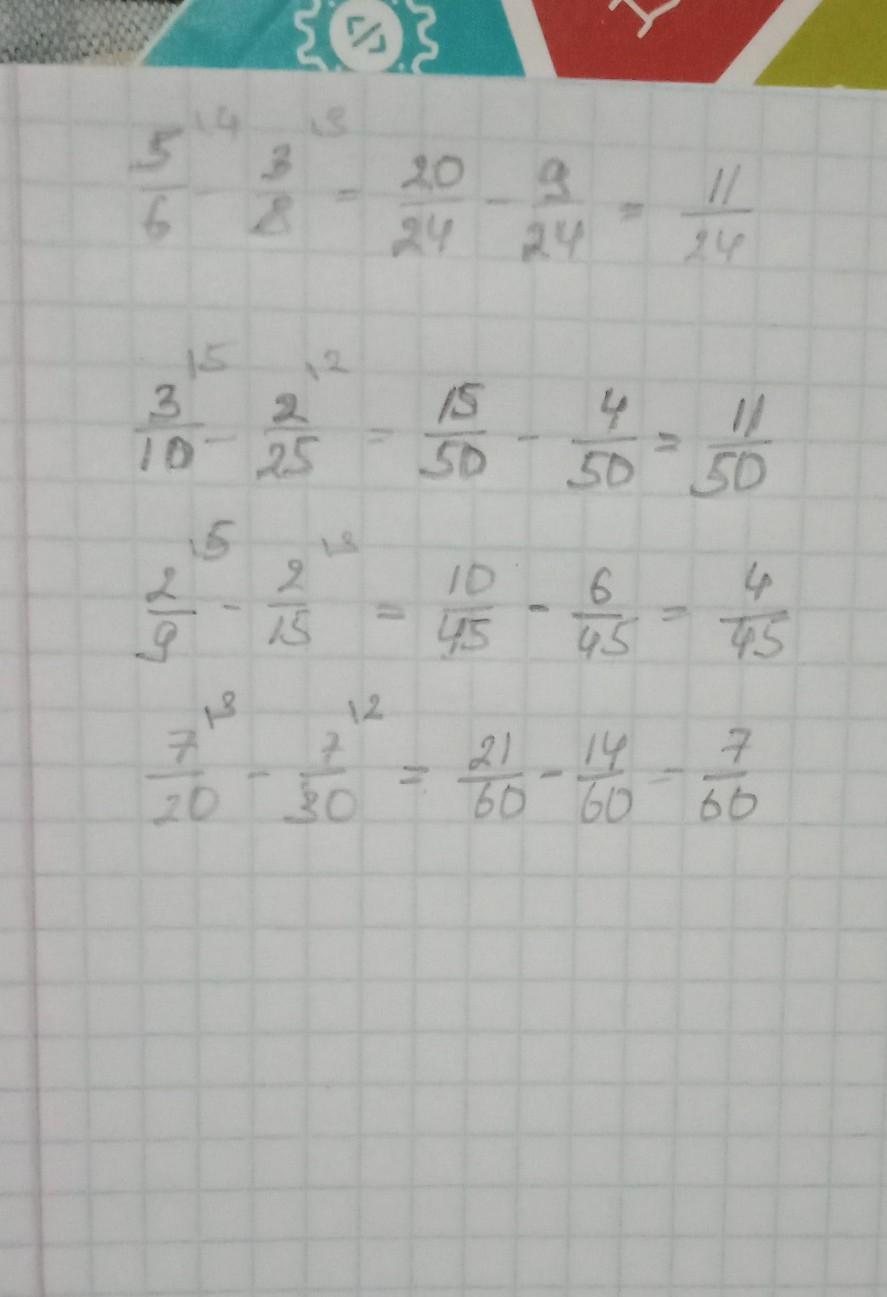 5/6 \4 - 3/8 \3 = 20/24 - 9/24 = 11/24
3/10 \5 - 2/25 \2 = 15/50 - 4/50 = 11/50
2/9 \5 - 2/15 \3 = 10/45 - 6/45 = 4/45
7/20 \3 - 7/30 \2 = 21/60 - 14/60 = 7/60